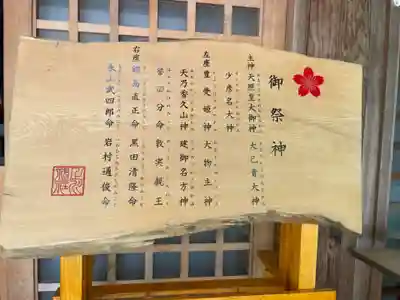 御祭神
主神 天照皇大御神 大己貴大神
少彦名大神
左座 豊受姫神 大物主神
天乃香久山神 建御名方神
誉田分命 敦実親王
右座 鍋島直正命 黒田清隆命
永山武四郎命 岩村通俊命